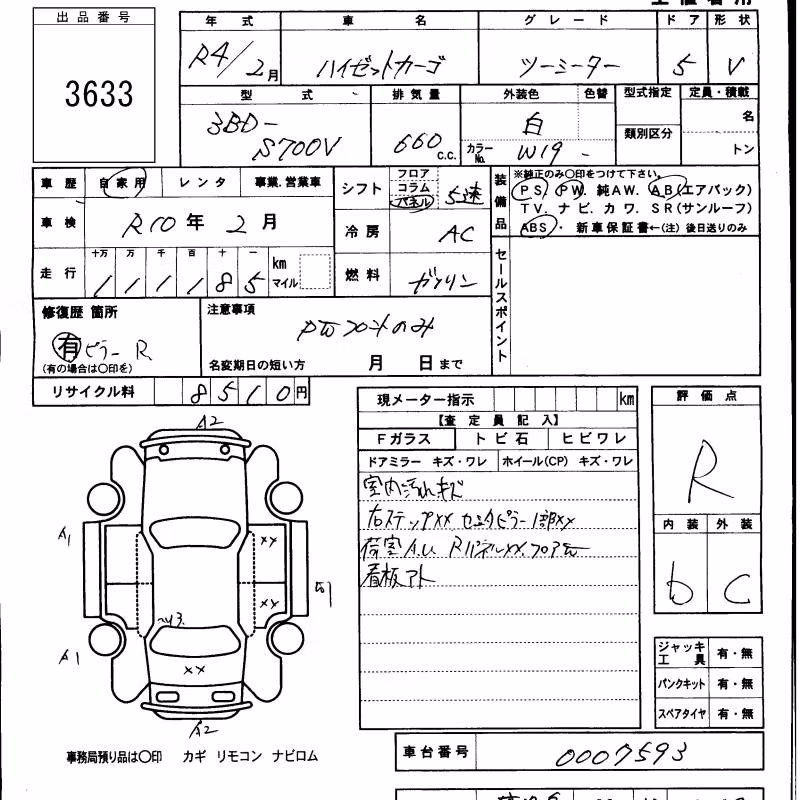 出品番号
3633
年式 車名 グレード ドア 形状
R4/2月 ハイゼットカーゴ ツーシーター 5 V
型式 排気量 外装色 色替 型式指定 定員・積載
3BD-
S700V 660 c.c. 白 類別区分 名
カラーNo. W19 - トン
車歴 自家用 レンタ 事業.営業車
シフト フロア コラム パネル 5速
車検 R10年 2月
冷房 AC
走行 十万 万 千 百 十 一
1 1 1 1 8 5 km マイル
燃料 ガソリン
装備品
※純正のみ〇印をつけて下さい。
PS. PW. 純AW. AB(エアバック)
TV. ナビ. カワ. SR(サンルーフ)
ABS・ 新車保証書←(注) 後日送りのみ
セールスポイント
修復歴 箇所
有 ピラー R
(有の場合は〇印を)
注意事項
PWフロントのみ
名変期日の短い方 月 日まで
リサイクル料 8510円
現メーター指示 km
【査定員記入】
Fガラス トビ石 ヒビワレ
ドアミラー キズ・ワレ ホイール(CP) キズ・ワレ
室内汚れキズ
右ステップXX センタピラー1部XX
荷室A.U RパネルXX.フロア
看板アト
評価点
R
内装 外装
b C
A2
A1
XX
XX
A1
XX
A2
ジャッキ工具 有・無
パンクキット 有・無
スペアタイヤ 有・無
事務局預り品は〇印 カギ リモコン ナビロム
車台番号 0007593